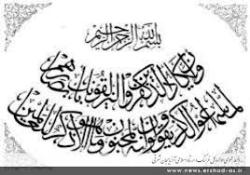 بسم الله الرحمن الرحيم
وإن يكاد الذين كفروا ليزلقونك بأبصارهم
لما سمعوا الذكر ويقولون إنه لمجنون وما هو إلا ذكر للعالمين
www.news.ershad-as.ir